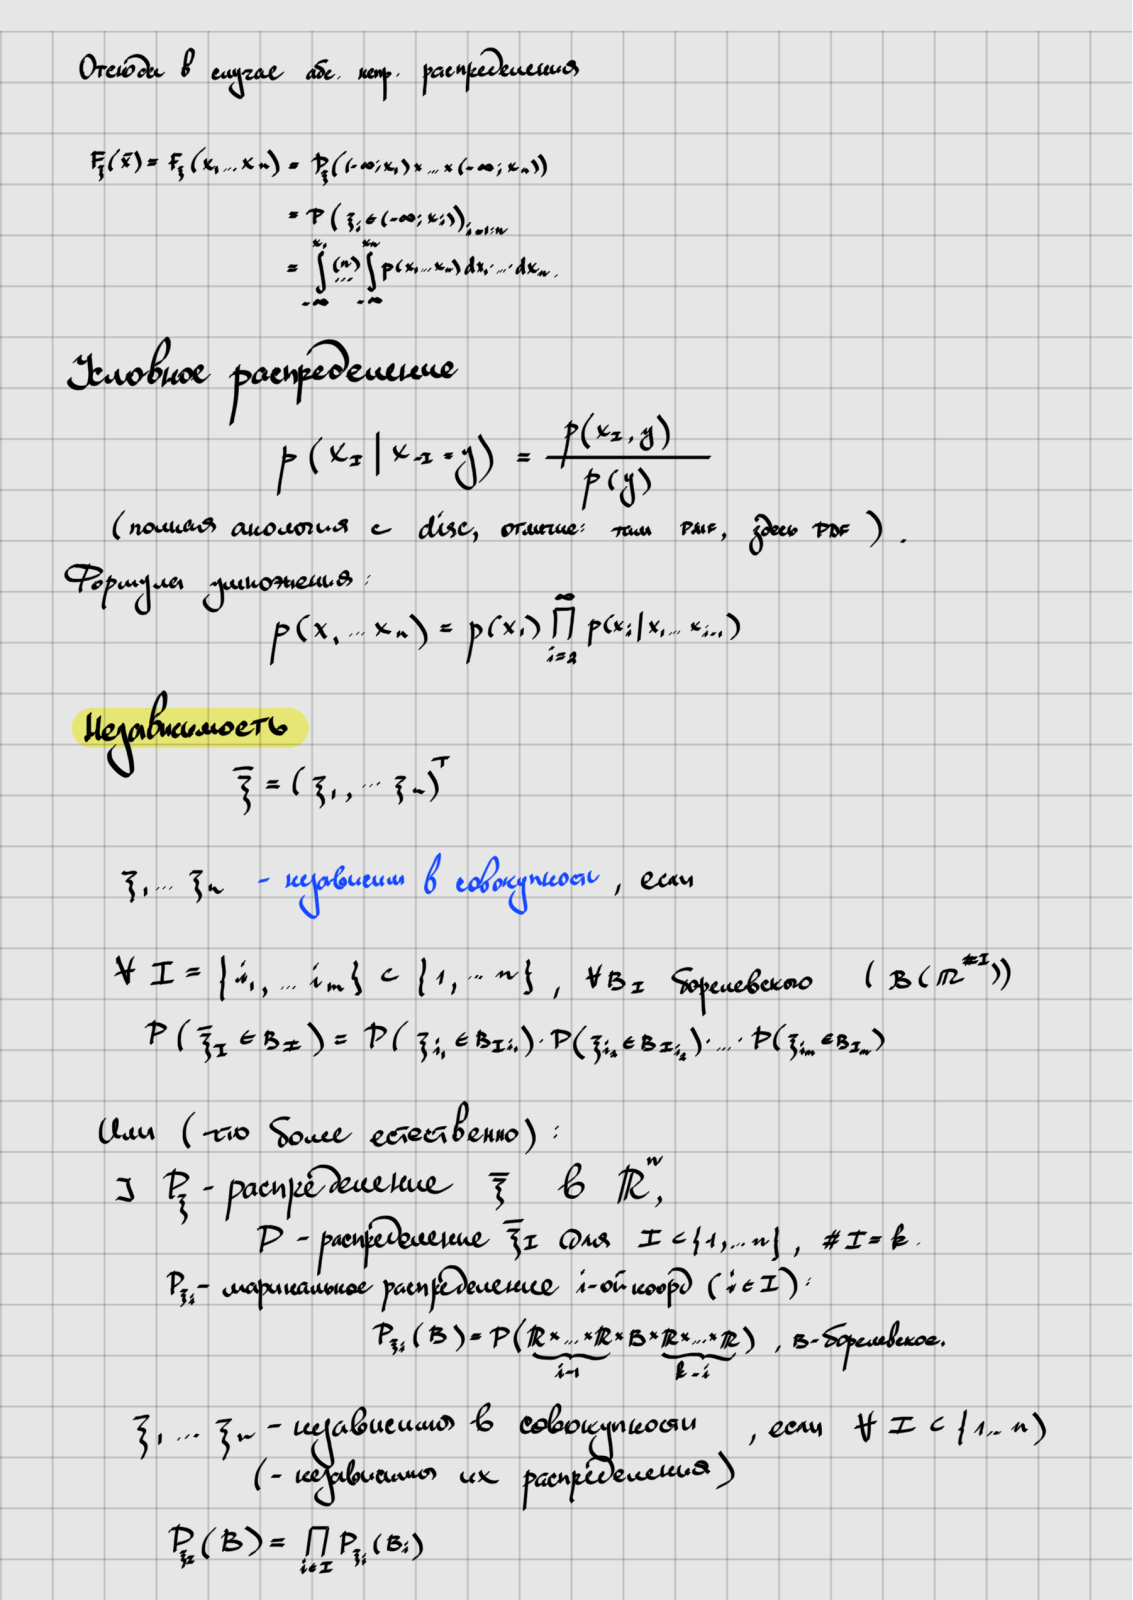 Отсюда в случае абс. непр. распределения
F_ξ(x̄) = F_ξ(x₁...xₙ) = P_ξ((-∞;x₁)×...×(-∞;xₙ))
= P(ξᵢ∈(-∞;xᵢ))_{i=1:n}
= ∫_{-∞}^{x₁} (n)... ∫_{-∞}^{xₙ} p(x₁...xₙ)dx₁·...·dxₙ.
Условное распределение
p(x_I | x_{-I} = y) = p(x_I, y) / p(y)
(полная анология с disc, отличие: там PMF, здесь PDF).
Формула умножения:
p(x₁...xₙ) = p(x₁) ∏_{i=2}^{∞} p(xᵢ|x₁...x_{i-1})
Независимость
ξ̄ = (ξ₁,...ξₙ)ᵀ
ξ₁...ξₙ - независим в совокупности, если
∀ I = {i₁,...iₘ} ⊂ {1,...n}, ∀B_I борелевского (B(ℝ^{#I}))
P(ξ̄_I ∈ B_I) = P(ξ_{i₁} ∈ B_{I_{i₁}})·P(ξ_{i₂} ∈ B_{I_{i₂}})·...·P(ξ_{iₘ} ∈ B_{Iₘ})
Или (что более естественно):
] P_ξ̄ - распределение ξ̄ в ℝⁿ,
P - распределение ξ̄_I для I ⊂ {1,...n}, #I = k.
P_{ξᵢ} - маргинальное распределение i-ой коорд (i ∈ I):
P_{ξᵢ}(B) = P(ℝ×...×ℝ×B×ℝ×...×ℝ), B-борелевское.
i-1 k-i
ξ₁...ξₙ - независимы в совокупности, если ∀ I ⊂ {1...n)
(- независимы их распределения)
P_{ξ_I}(B) = ∏_{i∈I} P_{ξᵢ}(Bᵢ)